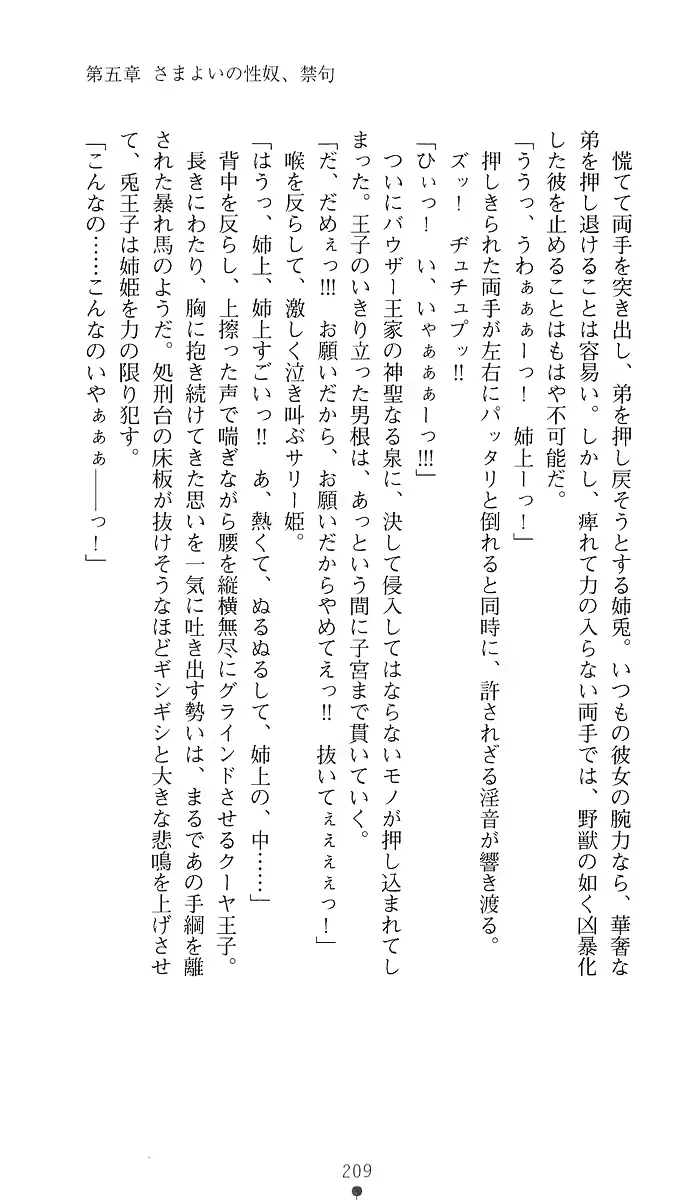 第五章 さまよいの性奴、禁句
慌てて両手を突き出し、弟を押し戻そうとする姉兎。いつもの彼女の腕力なら、華奢な
弟を押し退けることは容易い。しかし、痺れて力の入らない両手では、野獣の如く凶暴化
した彼を止めることはもはや不可能だ。
「ううっ、うわぁぁぁーっ！　姉上ーっ！」
押しきられた両手が左右にパッタリと倒れると同時に、許されざる淫音が響き渡る。
ズッ！　ヂュチュプッ!!
「ひぃっ！　い、いゃぁぁぁーっ!!!」
ついにバウザー王家の神聖なる泉に、決して侵入してはならないモノが押し込まれてし
まった。王子のいきり立った男根は、あっという間に子宮まで貫いていく。
「だ、だめぇっ!!!　お願いだから、お願いだからやめてえっ!!　抜いてぇぇぇぇっ！」
喉を反らして、激しく泣き叫ぶサリー姫。
「はうっ、姉上、姉上すごいっ!!　あ、熱くて、ぬるぬるして、姉上の、中……」
背中を反らし、上擦った声で喘ぎながら腰を縦横無尽にグラインドさせるクーヤ王子。
長きにわたり、胸に抱き続けてきた思いを一気に吐き出す勢いは、まるであの手綱を離
された暴れ馬のようだ。処刑台の床板が抜けそうなほどギシギシと大きな悲鳴を上げさせ
て、兎王子は姉姫を力の限り犯す。
「こんなの……こんなのいやぁぁぁ――っ！」
209